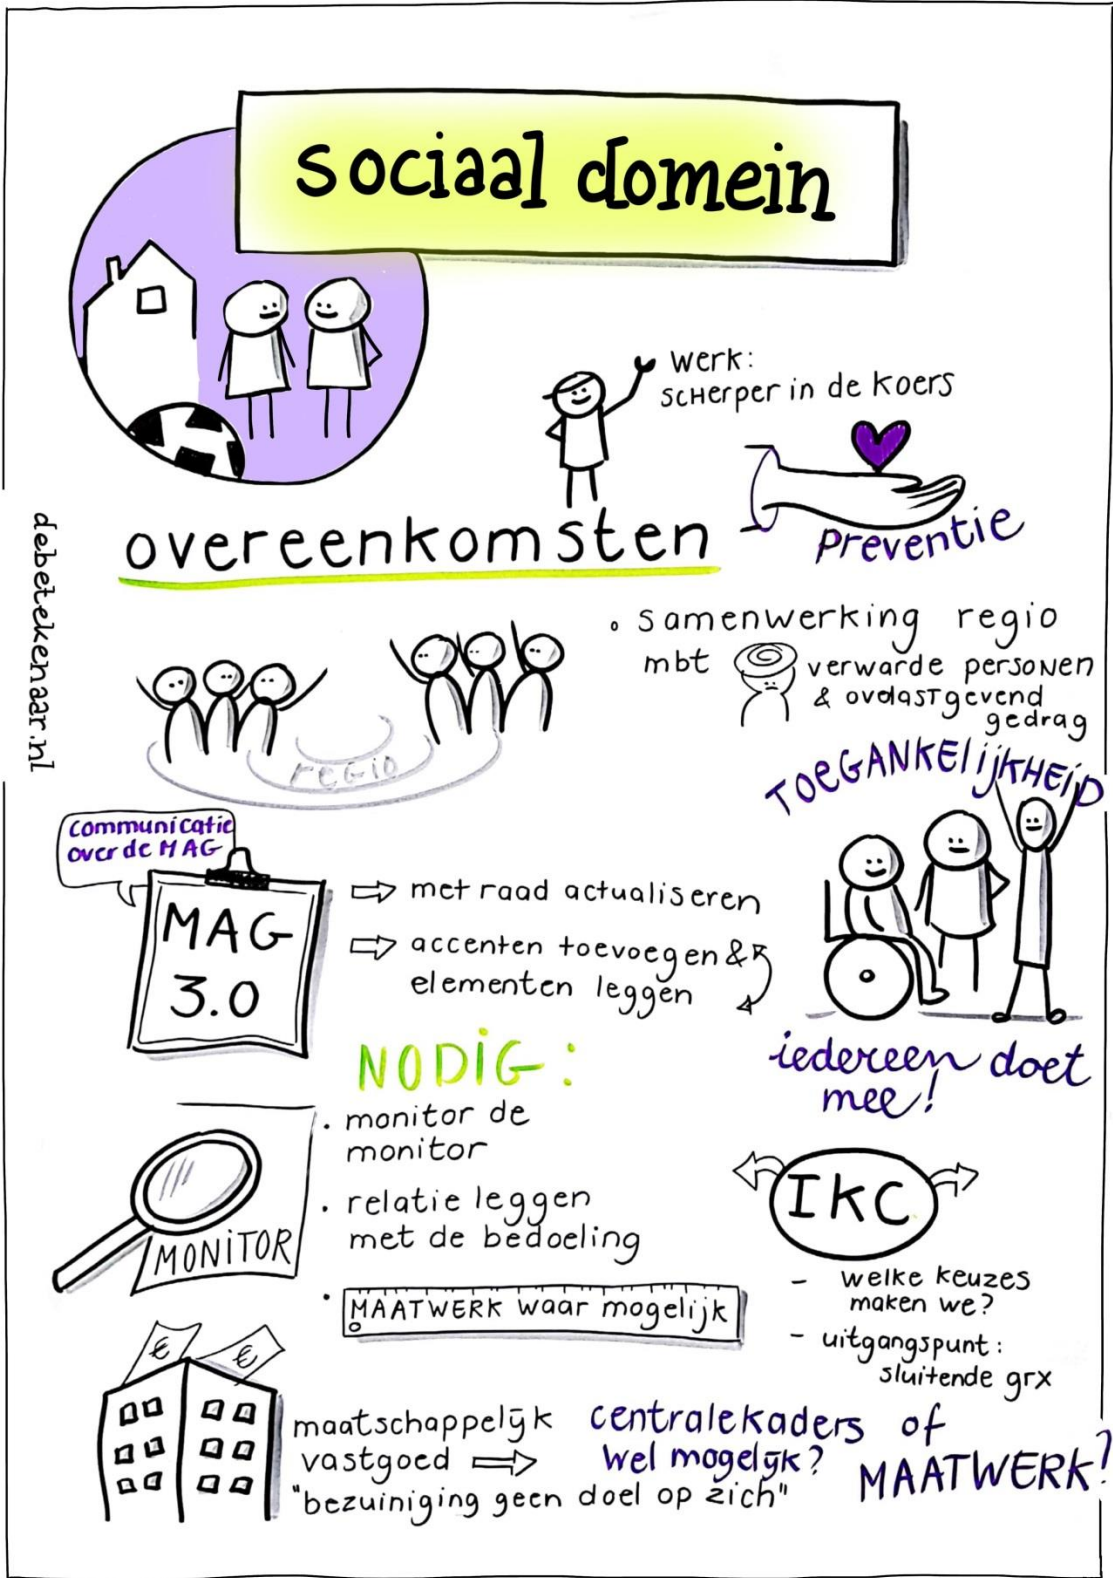 sociaal domein
werk:
scherper in de koers
preventie
overeenkomsten
debetekenaar.nl
• samenwerking regio
mbt verwarde personen
& ovelastgevend
gedrag
regio
TOEGANKElijkHEID
communicatie
over de MAG
MAG
3.0
⇨ met raad actualiseren
⇨ accenten toevoegen &
elementen leggen
iedereen doet
mee!
NODIG:
• monitor de
monitor
• relatie leggen
met de bedoeling
• MAATWERK waar mogelijk
MONITOR
IKC
- welke keuzes
maken we?
- uitgangspunt:
sluitende grx
€ €
maatschappelijk
vastgoed ⇨
"bezuiniging geen doel op zich"
centralekaders of
wel mogelijk? MAATWERK?